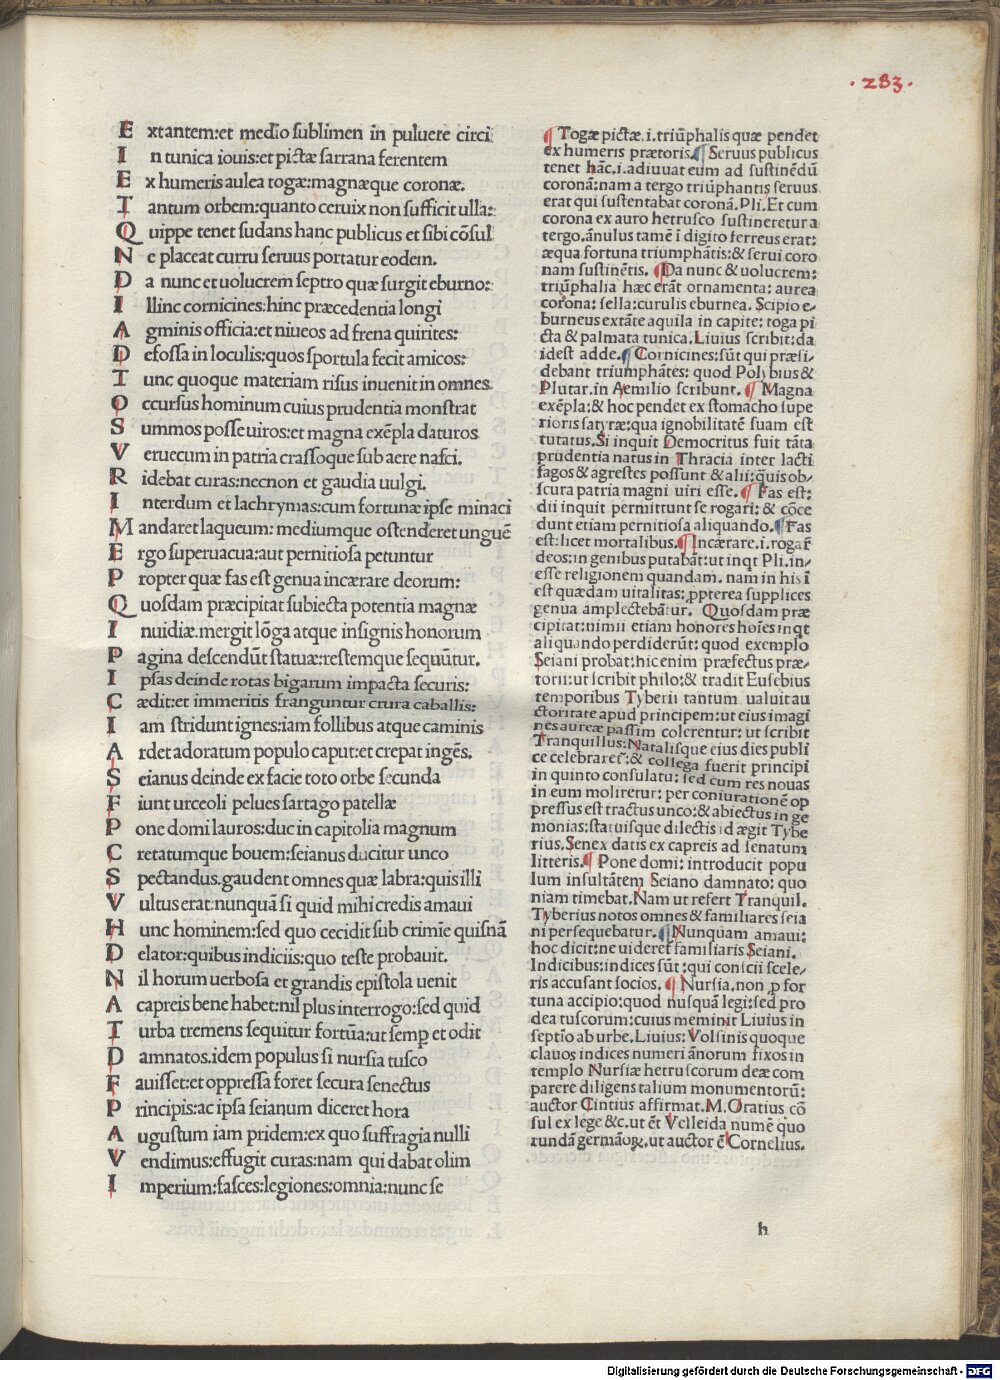 · 283 ·
E xtantem:et medio sublimen in puluere circi
I n tunica iouis:et pictæ sarrana ferentem
E x humeris aulea togæ:magnæque coronæ.
T antum orbem:quanto ceruix non sufficit ulla:
Q uippe tenet sudans hanc publicus et sibi cōsul
N e placeat curru seruus portatur eodem.
D a nunc et uolucrem septro quæ surgit eburno:
I llinc cornicines:hinc præcedentia longi
A gminis officia:et niueos ad frena quirites:
D efossa in loculis:quos sportula fecit amicos:
T unc quoque materiam risus inuenit in omnes
O ccursus hominum cuius prudentia monstrat
S ummos posse uiros:et magna exēpla daturos
V eruecum in patria crassoque sub aere nasci.
R idebat curas:necnon et gaudia uulgi.
I nterdum et lachrymas:cum fortunæ ipse minaci
M andaret laqueum: mediumque ostenderet unguē
E rgo superuacua:aut pernitiosa petuntur
P ropter quæ fas est genua incærare deorum:
Q uosdam præcipitat subiecta potentia magnæ
I nuidiæ.mergit lōga atque insignis honorum
P agina descendūt statuæ:restemque sequūtur.
I psas deinde rotas bigarum impacta securis:
C ædit:et immeritis franguntur crura caballis:
I am stridunt ignes:iam follibus atque caminis
A rdet adoratum populo caput:et crepat ingēs.
S eianus deinde ex facie toto orbe secunda
F iunt urceoli pelues sartago patellæ
P one domi lauros:duc in capitolia magnum
C retatumque bouem:seianus ducitur unco
S pectandus.gaudent omnes quæ labra:quis illi
V ultus erat:nunquā si quid mihi credis amaui
H unc hominem:sed quo cecidit sub crimīe quisnā
D elator:quibus indiciis:quo teste probauit.
N il horum uerbosa et grandis epistola uenit
A capreis bene habet:nil plus interrogo:sed quid
T urba tremens sequitur fortūa:ut semꝑ et odit
D amnatos.idem populus si nursia tusco
F auisset:et oppressa foret secura senectus
P rincipis:ac ipsa seianum diceret hora
A ugustum iam pridem:ex quo suffragia nulli
V endimus:effugit curas:nam qui dabat olim
I mperium:fasces:legiones:omnia:nunc se
¶ Togæ pictæ.i.triūphalis quæ pendet
ex humeris prætoris.¶ Seruus publicus
tenet hāc.i.adiuuat eum ad sustinēdū
coronā:nam a tergo triūphantis seruus
erat qui sustentabat coronā.Pli.Et cum
corona ex auro hetrusco sustineretur a
tergo.ānulus tamē ī digito ferreus erat:
æqua fortuna triumphātis:& serui coro
nam sustinētis. ¶Da nunc & uolucrem:
triūphalia hæc erāt ornamenta: aurea
corona: sella:curulis eburnea. Scipio e-
burneus extāte aquila in capite: toga pi
cta & palmata tunica.Liuius scribit:da
idest adde.¶ Cornicines:sūt qui præsi-
debant triumphātes: quod Polybius &
Plutar.in Aemilio scribunt. ¶ Magna
exēpla:& hoc pendet ex stomacho supe
rioris satyræ:qua ignobilitatē suam est
tutatus.Si inquit Democritus fuit tāta
prudentia natus in Thracia inter lacti
fagos & agrestes possunt & alii:quis ob-
scura patria magni uiri esse.¶ Fas est:
dii inquit permittunt se rogari: & cōce
dunt etiam pernitiosa aliquando.¶Fas
est:licet mortalibus.¶Incærare.i.rogar̄
deos:in genibus putabāt:ut inqt Pli.in-
esse religionem quandam. nam in his ī
est quædam uitalitas: ꝓpterea supplices
genua amplectebātur. Quosdam præ
cipitat:nimii etiam honores hoīes inqt
aliquando perdiderūt: quod exemplo
Seiani probat:hic enim præfectus præ-
torii:ut scribit philo:& tradit Eusebius
temporibus Tyberii tantum ualuit au
ctoritate apud principem:ut eius imagi
nes aureæ passim colerentur: ut scribit
Tranquillus:Natalisque eius dies publi
ce celebraret̄:& collega fuerit principi
in quinto consulatu: sed cum res nouas
in eum moliretur: per coniurationē op
pressus est tractus unco:& abiectus in ge
monias:statuisque dilectis id ægit Tybe
rius.Senex datis ex capreis ad senatum
litteris.¶ Pone domi: introducit popu
lum insultātem Seiano damnato: quo
niam timebat.Nam ut refert Tranquil.
Tyberius notos omnes & familiares seia
ni persequebatur.¶Nunquam amaui:
hoc dicit:ne uideret̄ familiaris Seiani.
Indicibus:indices sūt:qui conscii scele-
ris accusant socios. ¶ Nursia.non ꝑ for
tuna accipio:quod nusquā legi:sed pro
dea tuscorum:cuius meminit Liuius in
septīo ab urbe.Liuius: Volsinis quoque
clauos indices numeri ānorum fixos in
templo Nursiæ hetruscorum deæ com
parere diligens talium monumentorū:
auctor Cintius affirmat.M.Oratius cō
sul ex lege &c.ut ēt Velleida numē quo
rundā germāoꝝ.ut auctor ē Cornelius.
h
Digitalisierung gefördert durch die Deutsche Forschungsgemeinschaft - DFG